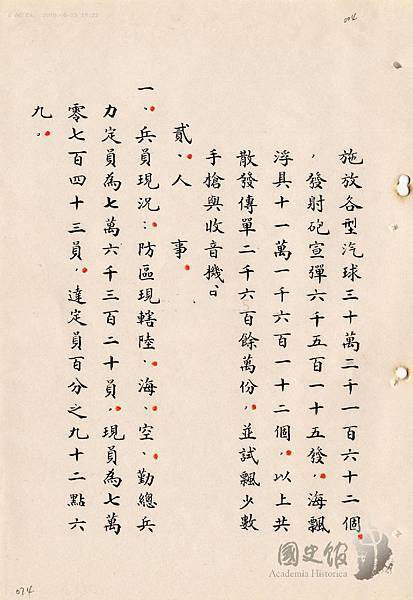 034
施放各型汽球三十萬二千一百六十二個
，發射砲宣彈六千五百一十五發，海飄
浮具十一萬一千六百一十二個，以上共
散發傳單二千六百餘萬份，並試飄少數
手搶與收音機。
貳、人　事。
一、兵員現況：防區現轄陸、海、空、勤總兵
力定員為七萬六千三百二十員，現員為七萬
零七百四十三員，達定員百分之九十二點六
九。
國史館
Academia Historica
034